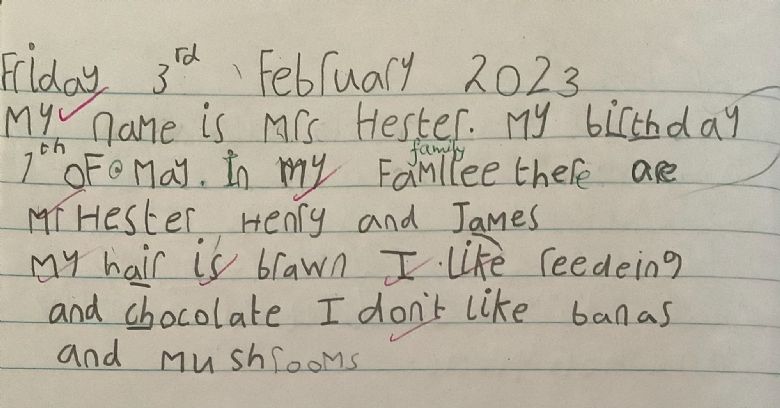 Friday 3rd February 2023
My name is Mrs Hester. My birthday
7th of May. In my family Famllee there are
Mr Hester Henry and James
My hair is brawn I like reedeing
and chocolate I don't like banas
and mushrooms